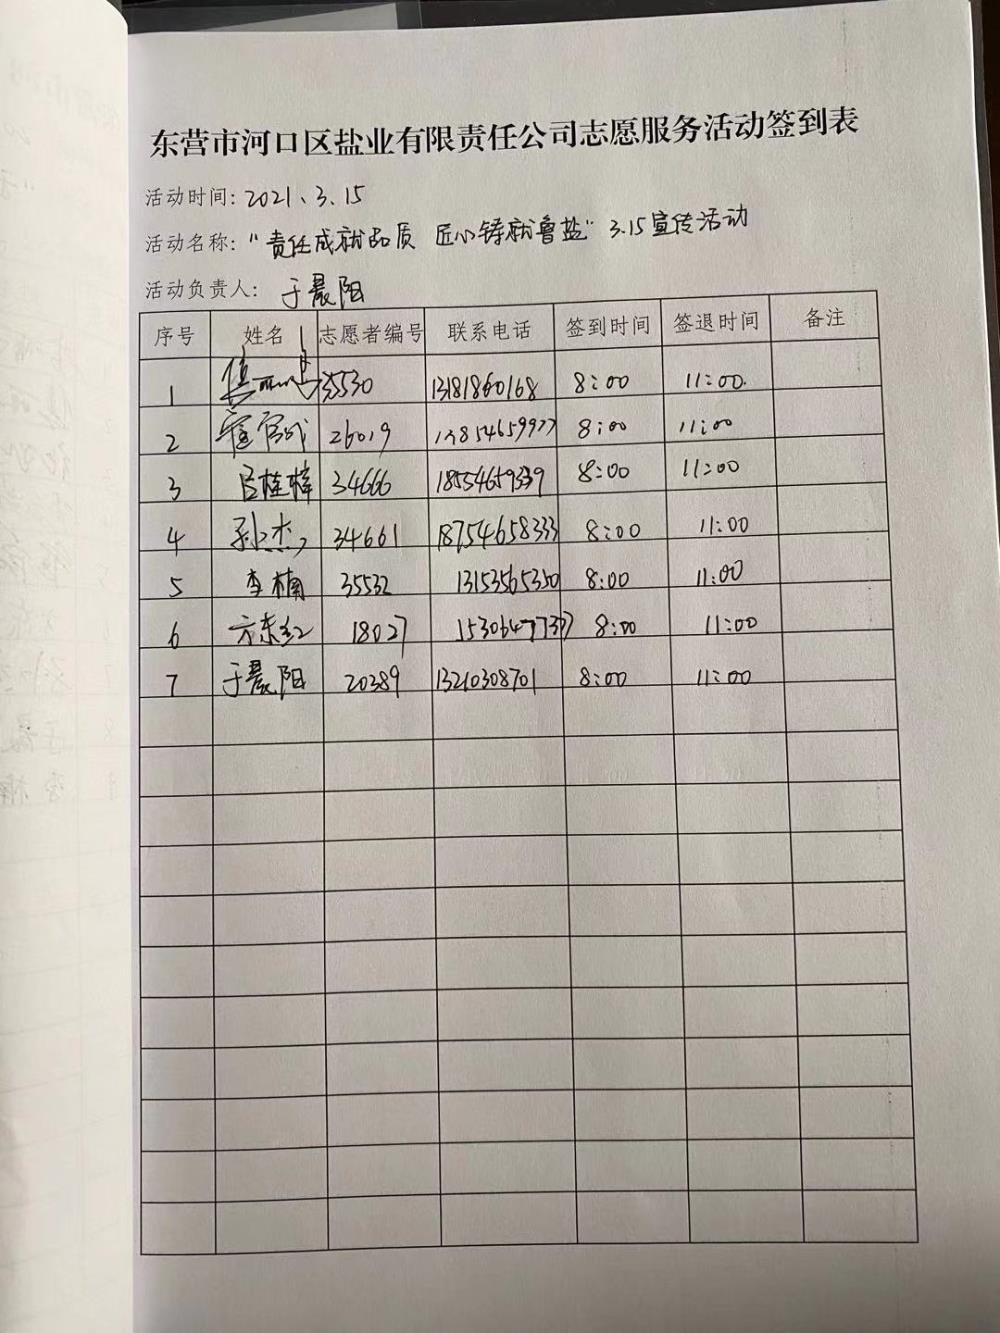 东营市河口区盐业有限责任公司志愿服务活动签到表
活动时间: 2021、3.15
活动名称: "责任成就品质 匠心铸就鲁盐" 3.15宣传活动
活动负责人: 于晨阳
序号 姓名 志愿者编号 联系电话 签到时间 签退时间 备注
1 35530 13181860168 8:00 11:00
2 26019 13854659977 8:00 11:00
3 吕桂梓 34666 18554659339 8:00 11:00
4 孙杰 34661 18754658333 8:00 11:00
5 李楠 35532 13153565350 8:00 11:00
6 方东红 18027 8:00 11:00
7 于晨阳 20389 13210308701 8:00 11:00